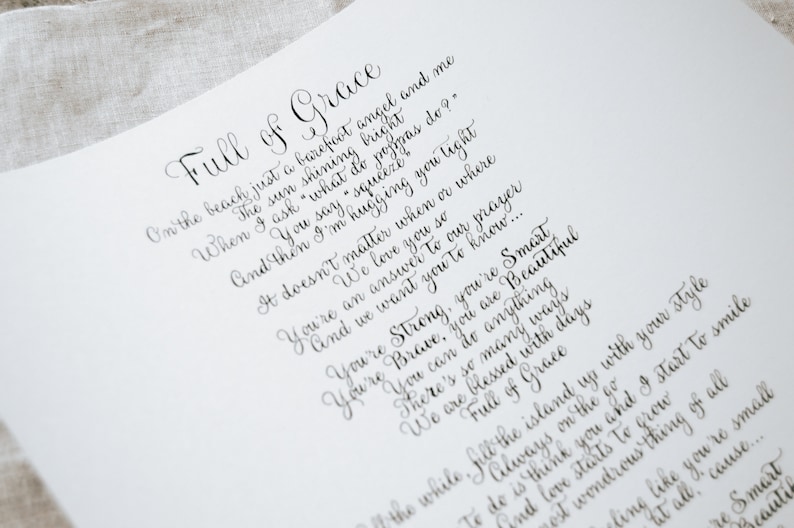 Full of Grace
On the beach just a barefoot angel and me
The sun shining bright
When I ask "what do poppas do?"
You say "squeeze"
And then I'm hugging you tight
It doesn't matter when or where
We love you so
You're an answer to our prayer
And we want you to know...
You're Strong, you're Smart
You're Brave, you are Beautiful
You can do anything
There's so many ways
We are blessed with days
Full of Grace
the while, fill the island up with your style
Always on the go
to do is think you and I start to smile
And love starts to grow
most wondrous thing of all
feeling like you're small
it all, 'cause...
Smart